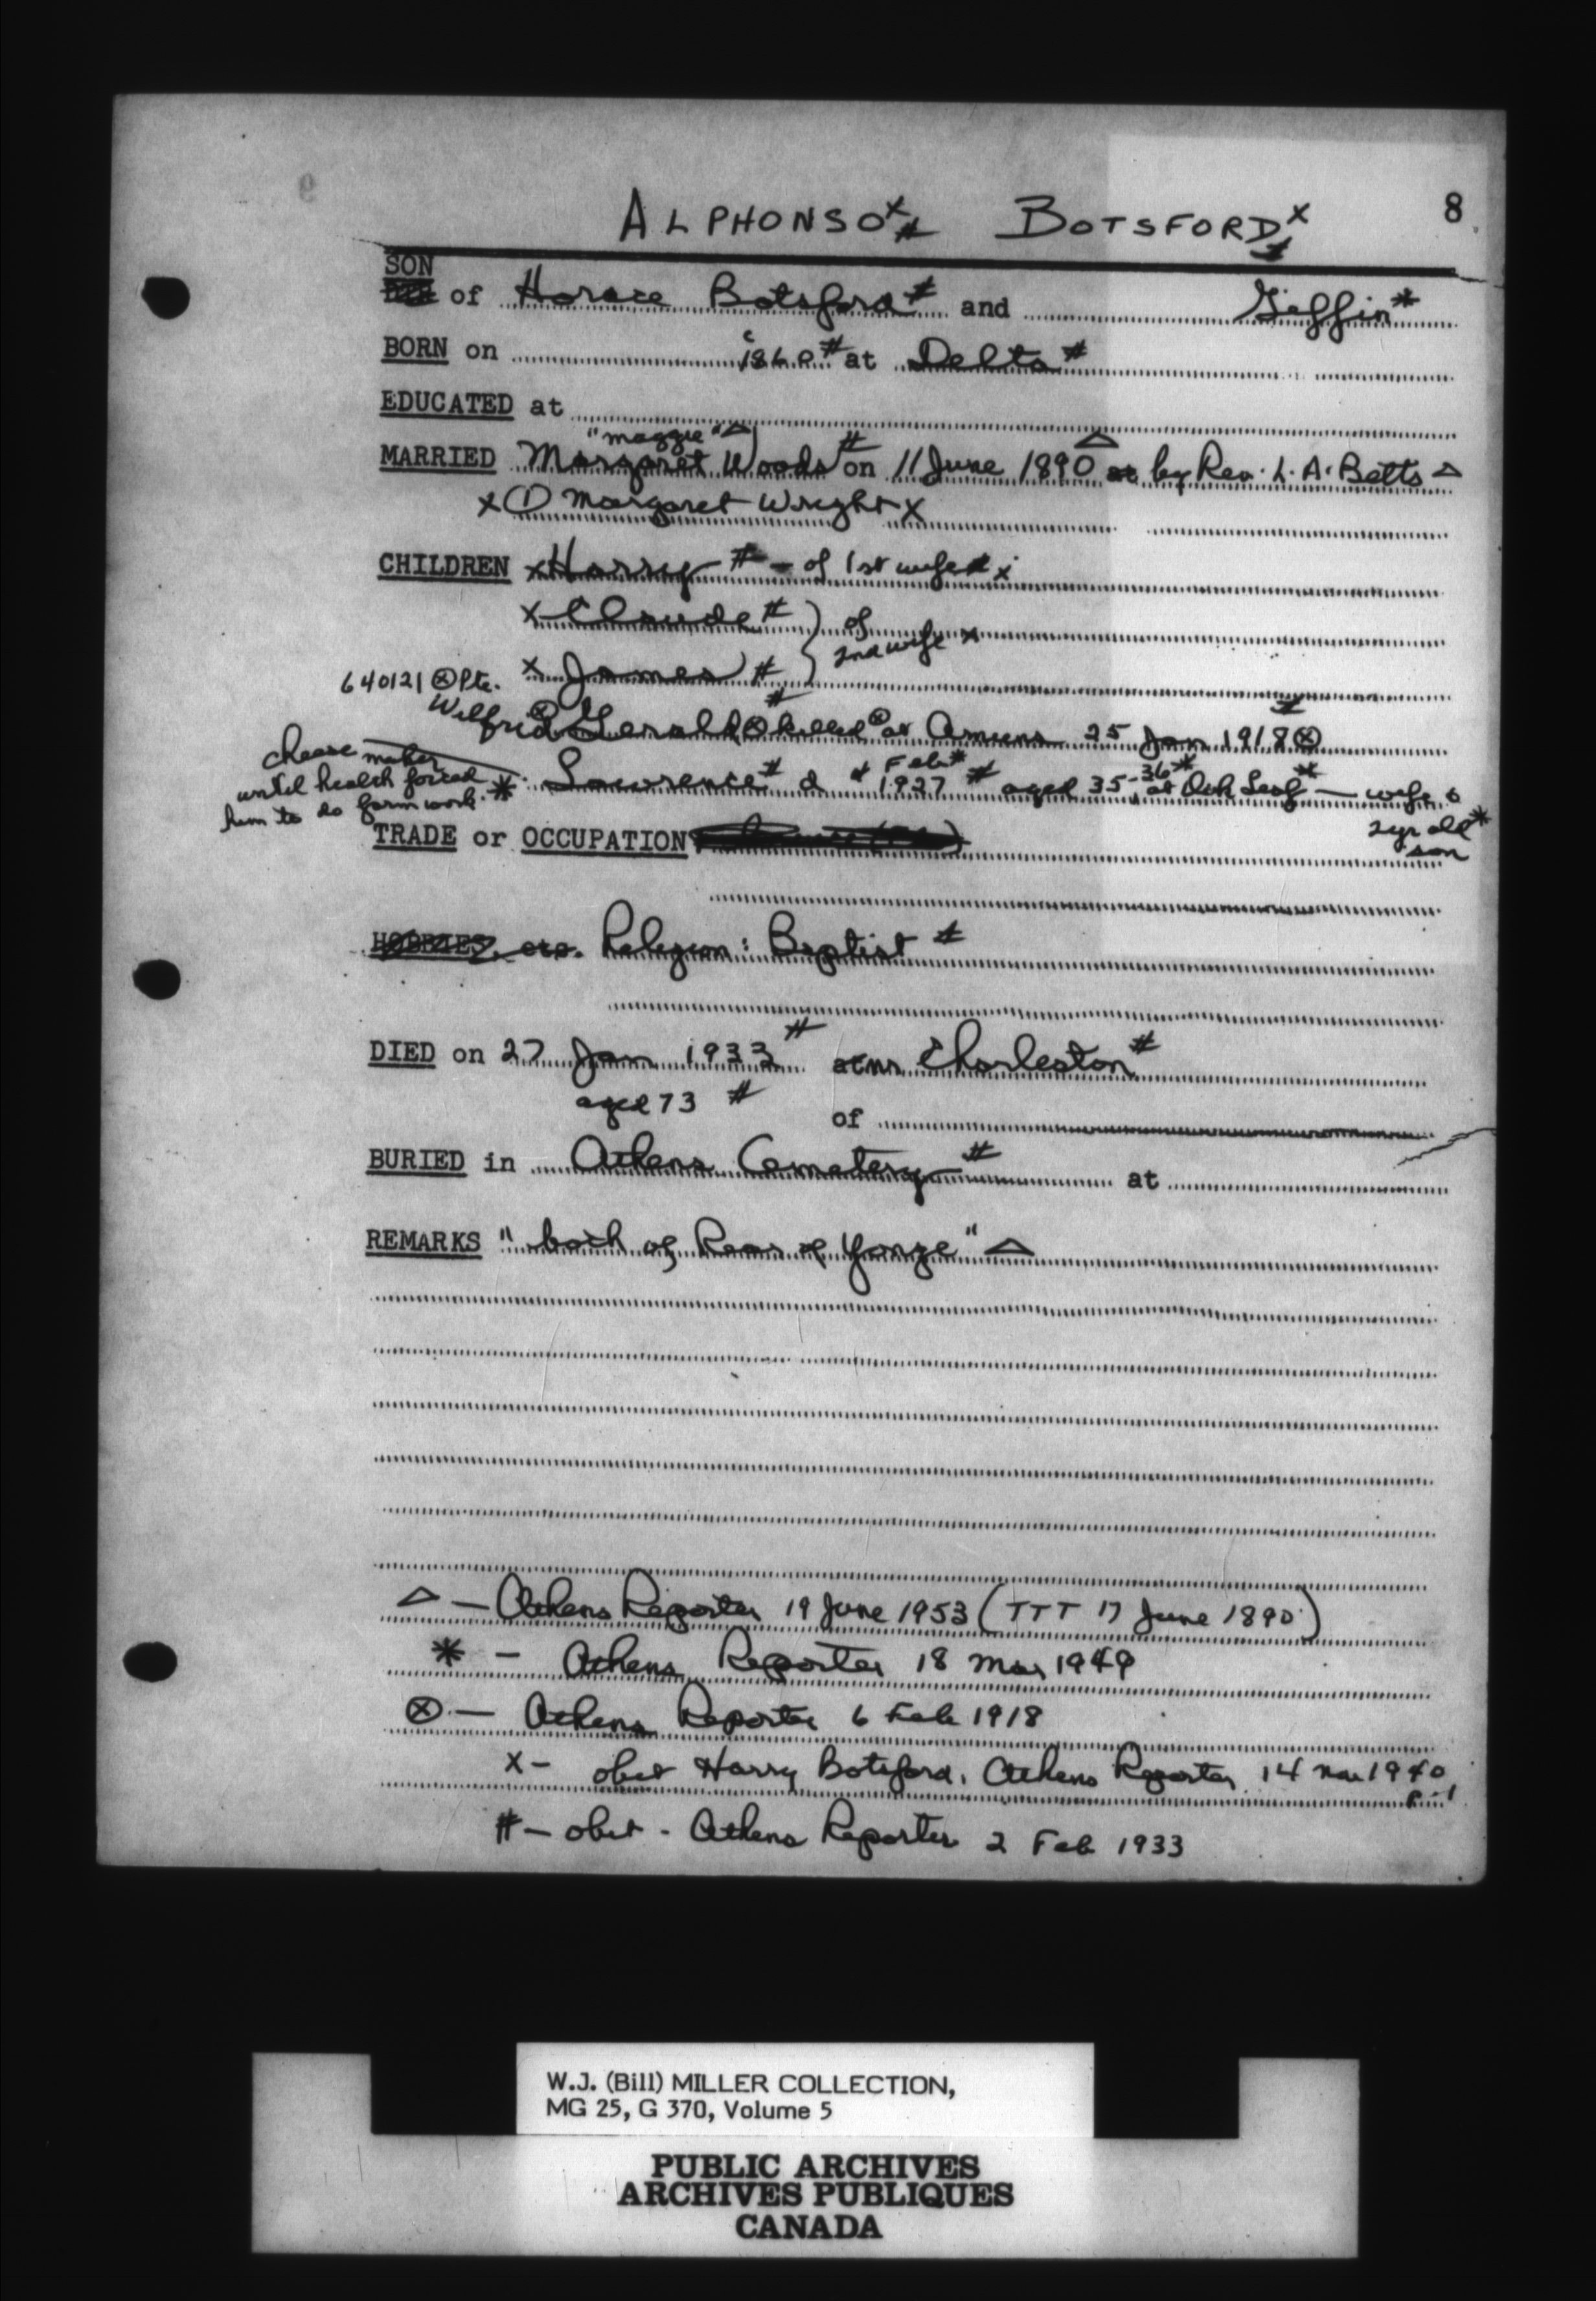 8
ALPHONSO x # BOTSFORD x #
SON of Horace Botsford # and Giffin *
BORN on c 1860 # at Delta #
EDUCATED at
"Maggie" △
MARRIED Margaret Woods # on 11 June 1890 △ by Rev. L. A. Betts △
x ① Margaret Wright x
CHILDREN x Harry # - of 1st wife # x
x Claude # } of
x James # } 2nd wife x
640121 ⊗ Pte.
Wilfrid ⊗ Gerald # ⊗ killed ⊗ at Amiens 25 Jan 1918 # ⊗
cheese maker
until health forced
him to do farm work. *
Lawrence # d * Feb * 1927 # aged 35, -36 * at Oak Leaf * — wife &
2 yr old *
son
TRADE or OCCUPATION
HOBBIES, etc. Religion: Baptist #
DIED on 27 Jan 1933 # at nr Charleston #
aged 73 #
of
BURIED in Athens Cemetery # at
REMARKS "both of Rear of Yonge" △
△ — Athens Reporter 19 June 1953 (TTT 17 June 1890)
* - Athens Reporter 18 Mar 1949
⊗ — Athens Reporter 6 Feb 1918
x - obit Harry Botsford, Athens Reporter 14 Mar 1940
p-1
# — obit - Athens Reporter 2 Feb 1933
W.J. (Bill) MILLER COLLECTION,
MG 25, G 370, Volume 5
PUBLIC ARCHIVES
ARCHIVES PUBLIQUES
CANADA